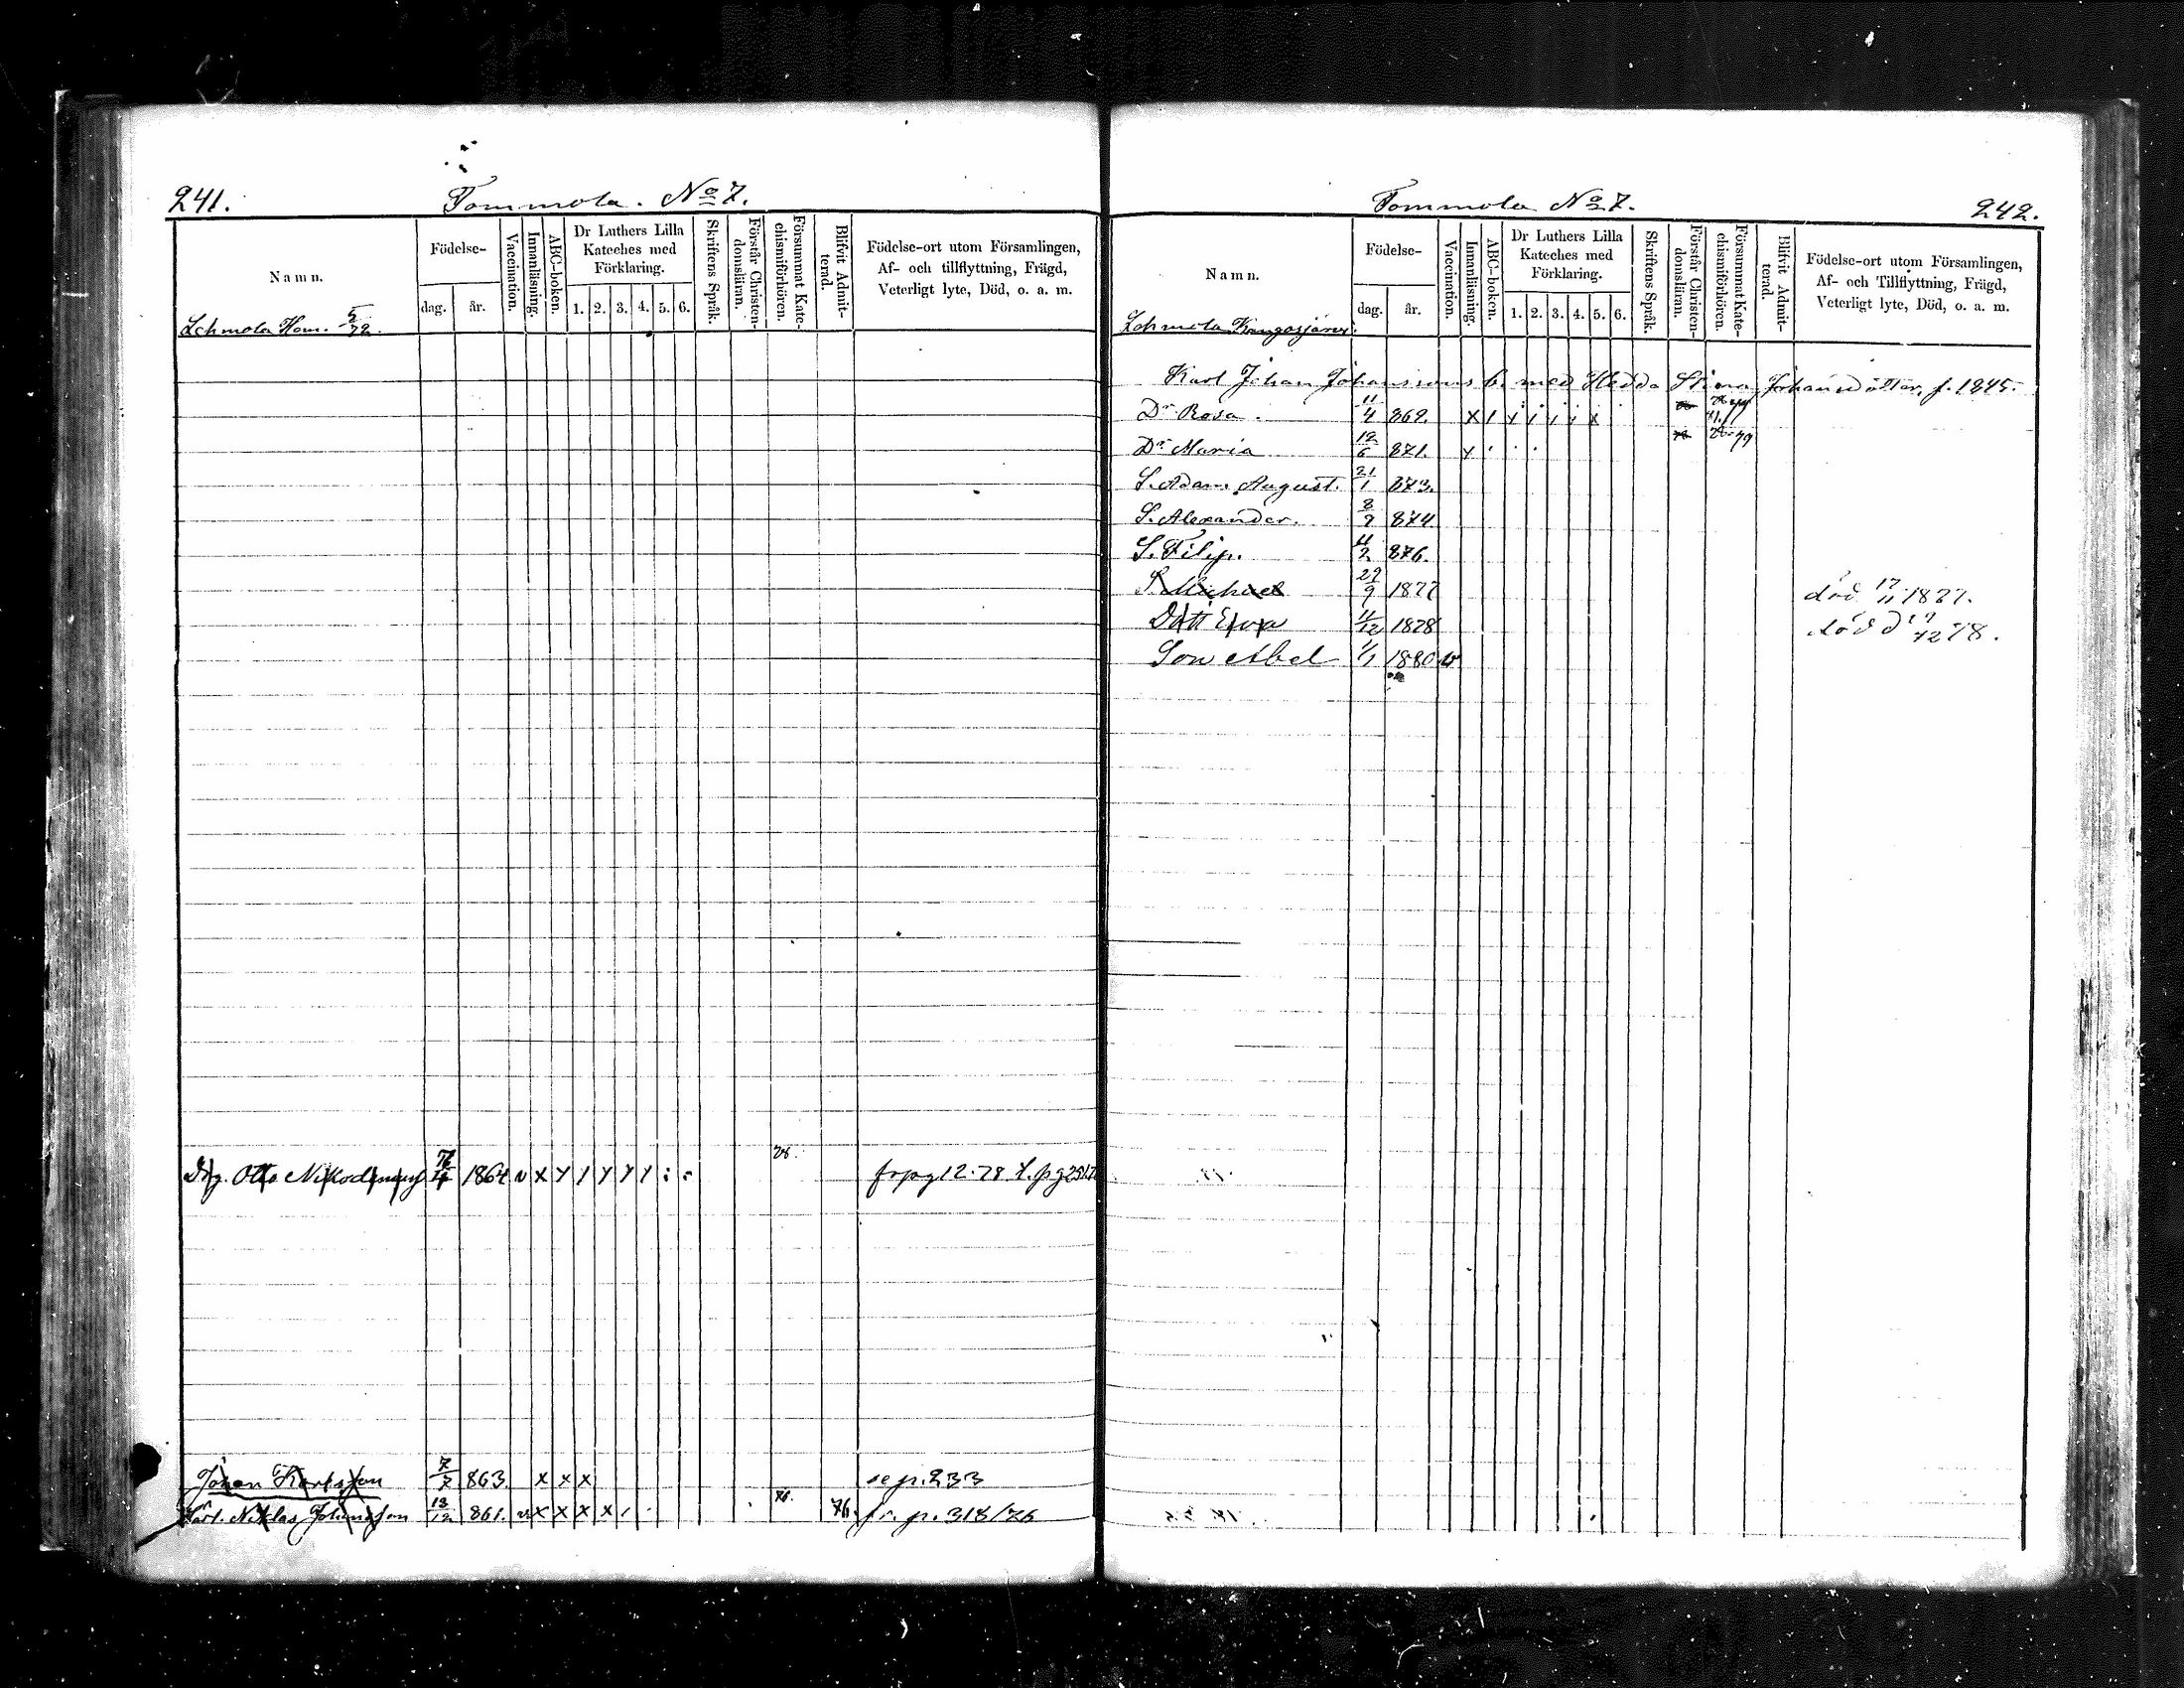 241.
Tommola. No 7.
Namn.
Födelse-
dag.
år.
Vaccination.
Innanläsning.
ABC-boken.
Dr Luthers Lilla Kateches med Förklaring.
1. 2. 3. 4. 5. 6.
Skriftens Språk.
Förstår Christen-domsläran.
Försummat Kate-chismiförhören.
Blifvit Admit-terad.
Födelse-ort utom Församlingen,
Af- och tillflyttning, Frägd,
Veterligt lyte, Död, o. a. m.
Lehmola Hem. 5/72.
78.
Drg. Otto Nikodemus 7/4 1864 v x y / y y / : : fr pg 12·78 t. pg
Johan Karlsson 7/7 863. x x x se p. 233
76.
Karl Niklas Johansson 13/12 861. v x x x x / 76. fr. p. 318/76
Tommola No 7.
242.
Namn.
Födelse-
dag.
år.
Vaccination.
Innanläsning.
ABC-boken.
Dr Luthers Lilla Kateches med Förklaring.
1. 2. 3. 4. 5. 6.
Skriftens Språk.
Förstår Christen-domsläran.
Försummat Kate-chismiförhören.
Blifvit Admit-terad.
Födelse-ort utom Församlingen,
Af- och Tillflyttning, Frägd,
Veterligt lyte, Död, o. a. m.
Lehmola Kangasjärvi.
Karl Johan Johanssons b. med Hedda Stina Johansdotter, f. 1845.
Dr Rosa. 11/4 869. x
Dr Maria 12/6 871. y
S. Adam August. 21/1 873.
S. Alexander. 8/9 874
S. Filip. 11/2 876.
S Michael 29/9 1877 död 17/11 1877.
Dott Eva 11/12 1878 död d 19/12 78.
Son Abel 1/1 1880 v